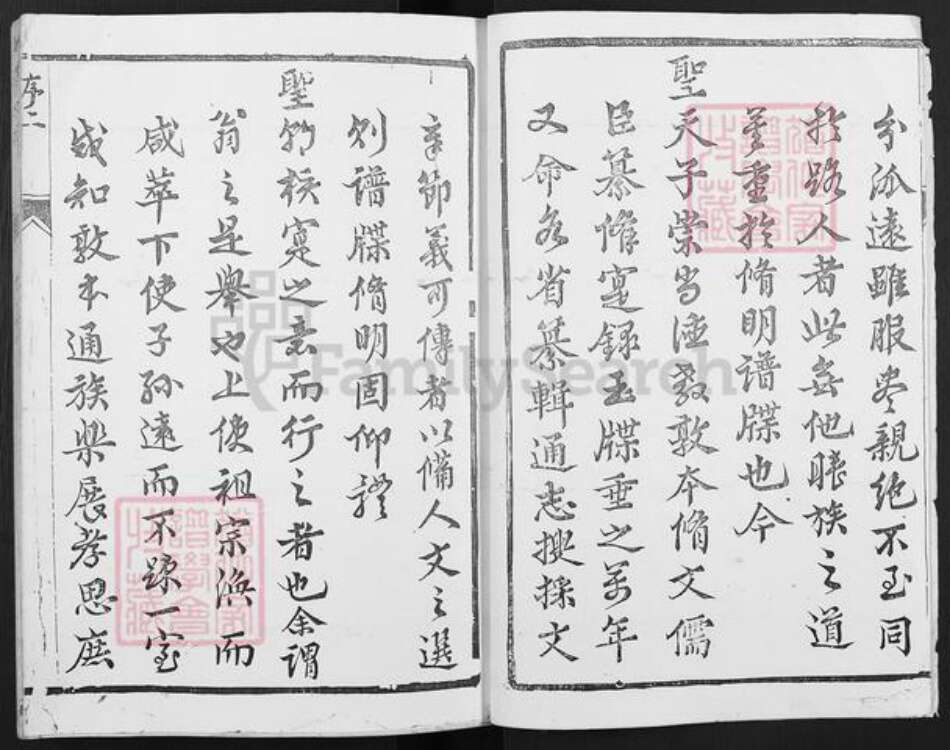 分派遠雖服盡親絕不至同
於路人者此無他睦族之道
莫重於脩明譜牒也今
聖天子崇尚湮教敦本脩文儒
臣纂脩寔錄玉牒垂之萬年
又命各省纂輯通志搜採文
章節義可傳者以備人文之選
則譜牒脩明固仰體
聖朝核寔之意而行之者也余謂
翁之是舉也上使祖宗渙而
咸萃下使子孫遠而不踈一室
咸知敦本通族樂展孝思庶
序二
FamilySearch